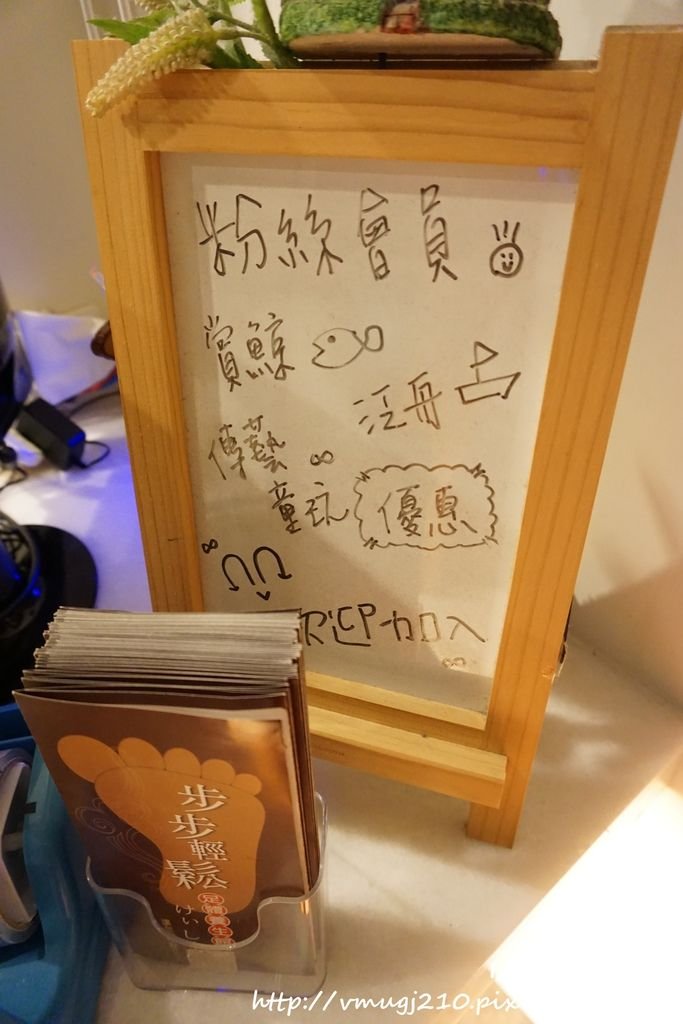 粉絲會員
賞鯨
泛舟
傳藝
童玩
優惠
歡迎加入
步步輕鬆
足體養生館
けいし
http://vmugj210.pix